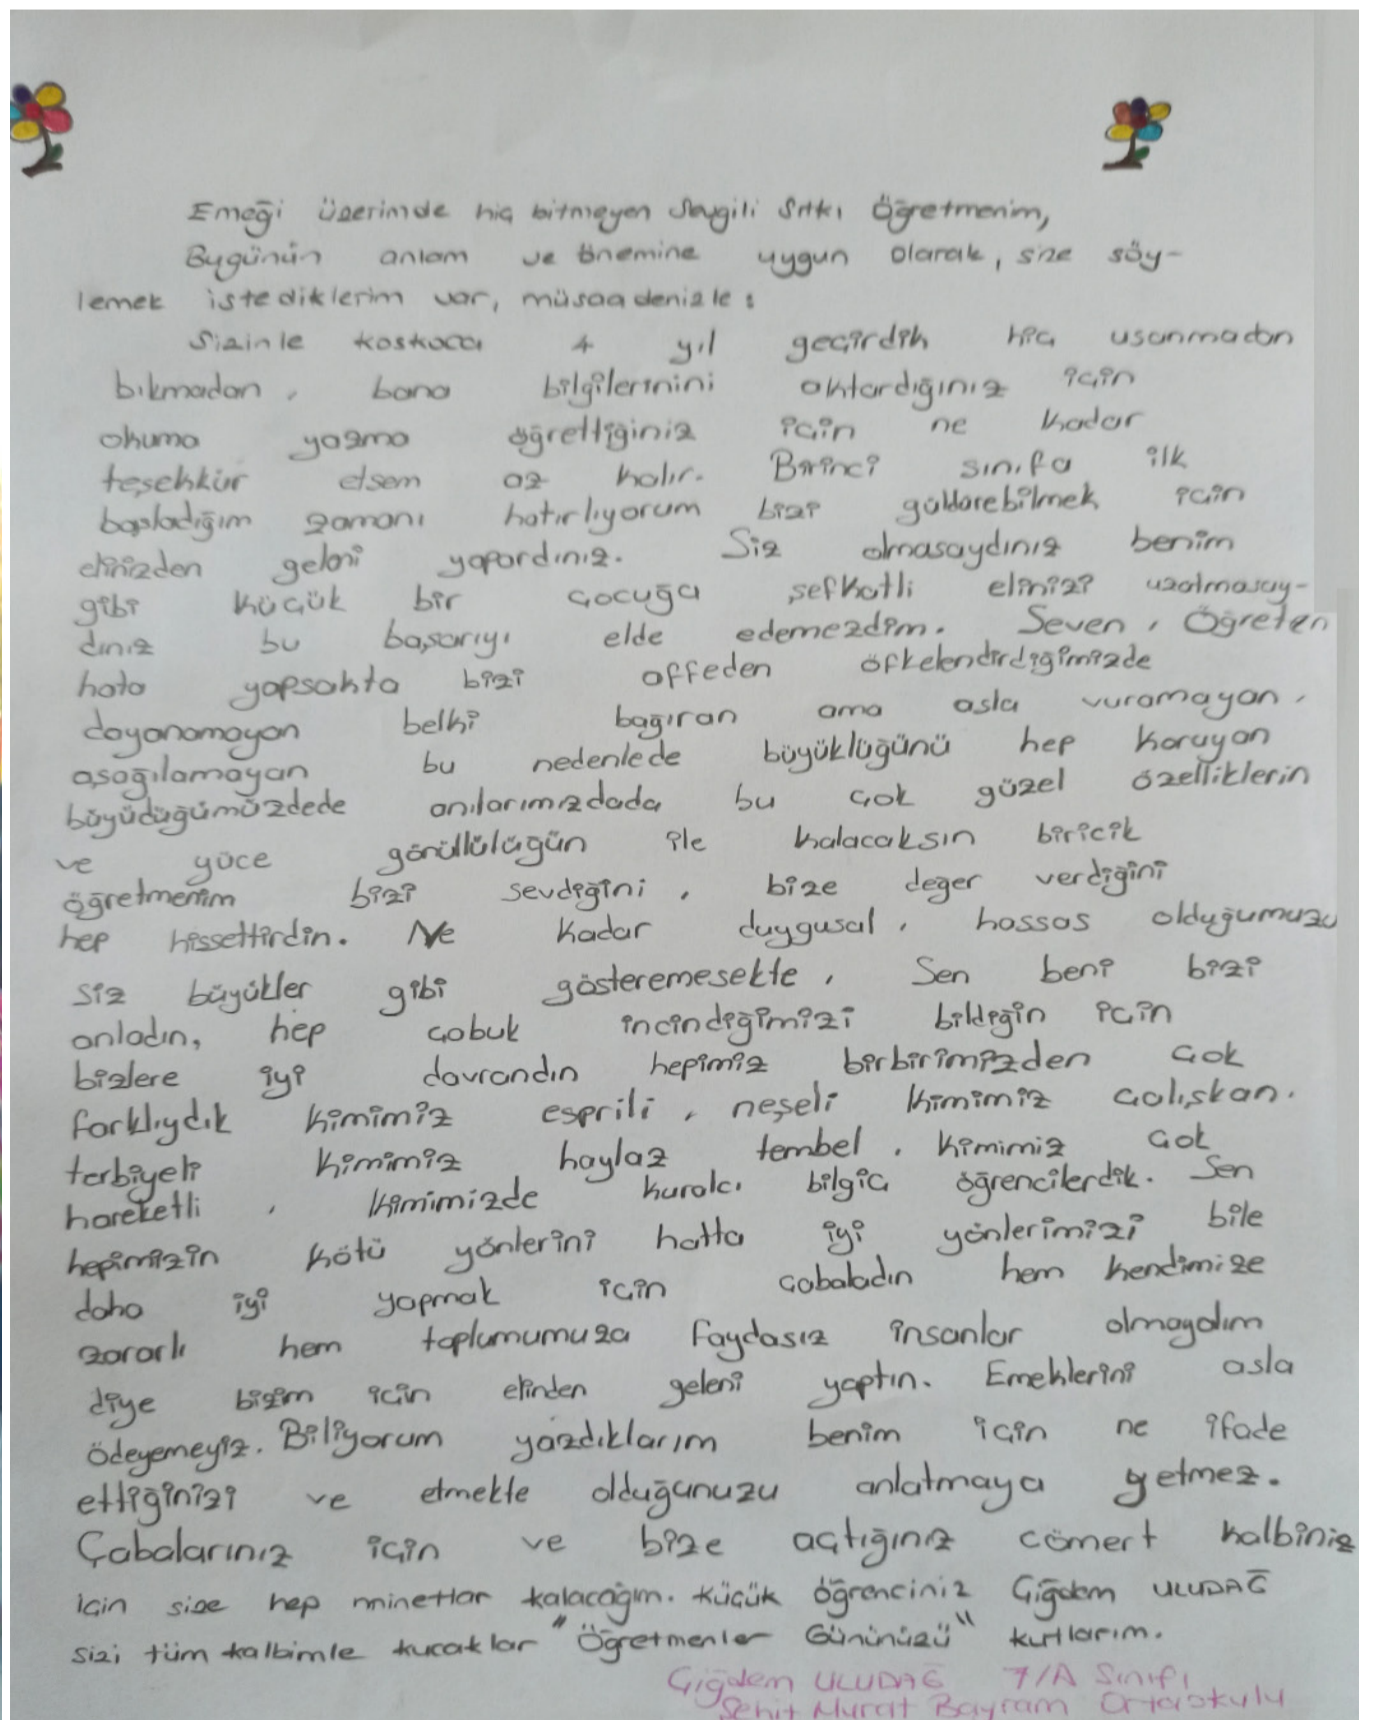 Emeği üzerimde hiç bitmeyen Sevgili Sıtkı Öğretmenim,
Bugünün anlam ve önemine uygun olarak, size söy-
lemek istediklerim var, müsaadenizle:
Sizinle koskoca 4 yıl geçirdik hiç usanmadan
bıkmadan, bana bilgilerinini aktardığınız için
okuma yazma öğrettiğiniz için ne kadar
teşekkür etsem az kalır. Birinci sınıfa ilk
başladığım zamanı hatırlıyorum bizi güldürebilmek için
elinizden geleni yapardınız. Siz olmasaydınız benim
gibi küçük bir çocuğa şefkatli elinizi uzatmasay-
dınız bu başarıyı elde edemezdim. Seven, Öğreten
hata yapsakta bizi affeden öfkelendirdiğimizde
dayanamayan belki bağıran ama asla vuramayan,
aşağılamayan bu nedenlede büyüklüğünü hep koruyan
büyüdüğümüzdede anılarımızdada bu çok güzel özelliklerin
ve yüce gönüllülüğün ile kalacaksın biricik
öğretmenim bizi sevdiğini, bize değer verdiğini
hep hissettirdin. Ne kadar duygusal, hassas olduğumuzu
siz büyükler gibi gösteremesekte, Sen beni bizi
anladın, hep çabuk incindiğimizi bildiğin için
bizlere iyi davrandın hepimiz birbirimizden çok
farklıydık kimimiz esprili, neşeli kimimiz çalışkan.
terbiyeli kimimiz haylaz tembel, kimimiz çok
hareketli, kimimizde kuralcı bilgiç öğrencilerdik. Sen
hepimizin kötü yönlerini hatta iyi yönlerimizi bile
daha iyi yapmak için çabaladın hem kendimize
zararlı hem toplumumuza faydasız insanlar olmayalım
diye bizim için elinden geleni yaptın. Emeklerini asla
ödeyemeyiz. Biliyorum yazdıklarım benim için ne ifade
ettiğinizi ve etmekte olduğunuzu anlatmaya yetmez.
Çabalarınız için ve bize açtığınız cömert kalbiniz
için size hep minettar kalacağım. Küçük öğrenciniz Çiğdem ULUDAĞ
sizi tüm kalbimle kucaklar "Öğretmenler Gününüzü" kutlarım.
Çiğdem ULUDAĞ 7/A Sınıfı
Şehit Murat Bayram Ortaokulu